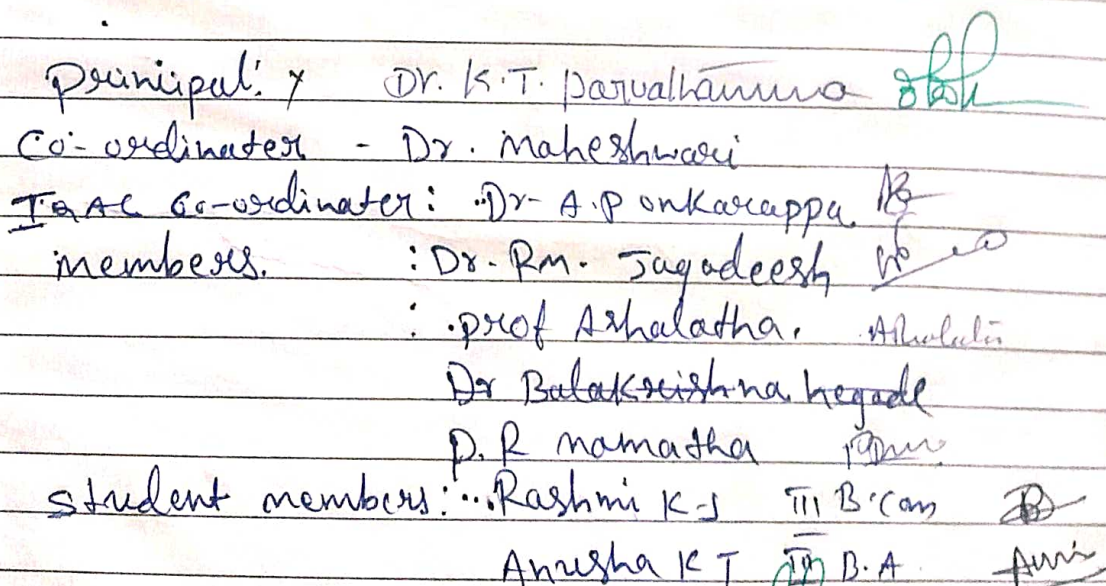 Principal: Dr. K.T. Parvathamma
Co-ordinater - Dr. Maheshwari
IQAC Co-ordinater: Dr. A.P onkarappa
members. : Dr. Rm. Jagadeesh
: prof Ashalatha.
Dr Balakreishna hegade
P. R namatha
student members: Rashmi K-J III B.Com
Anusha K T III B.A